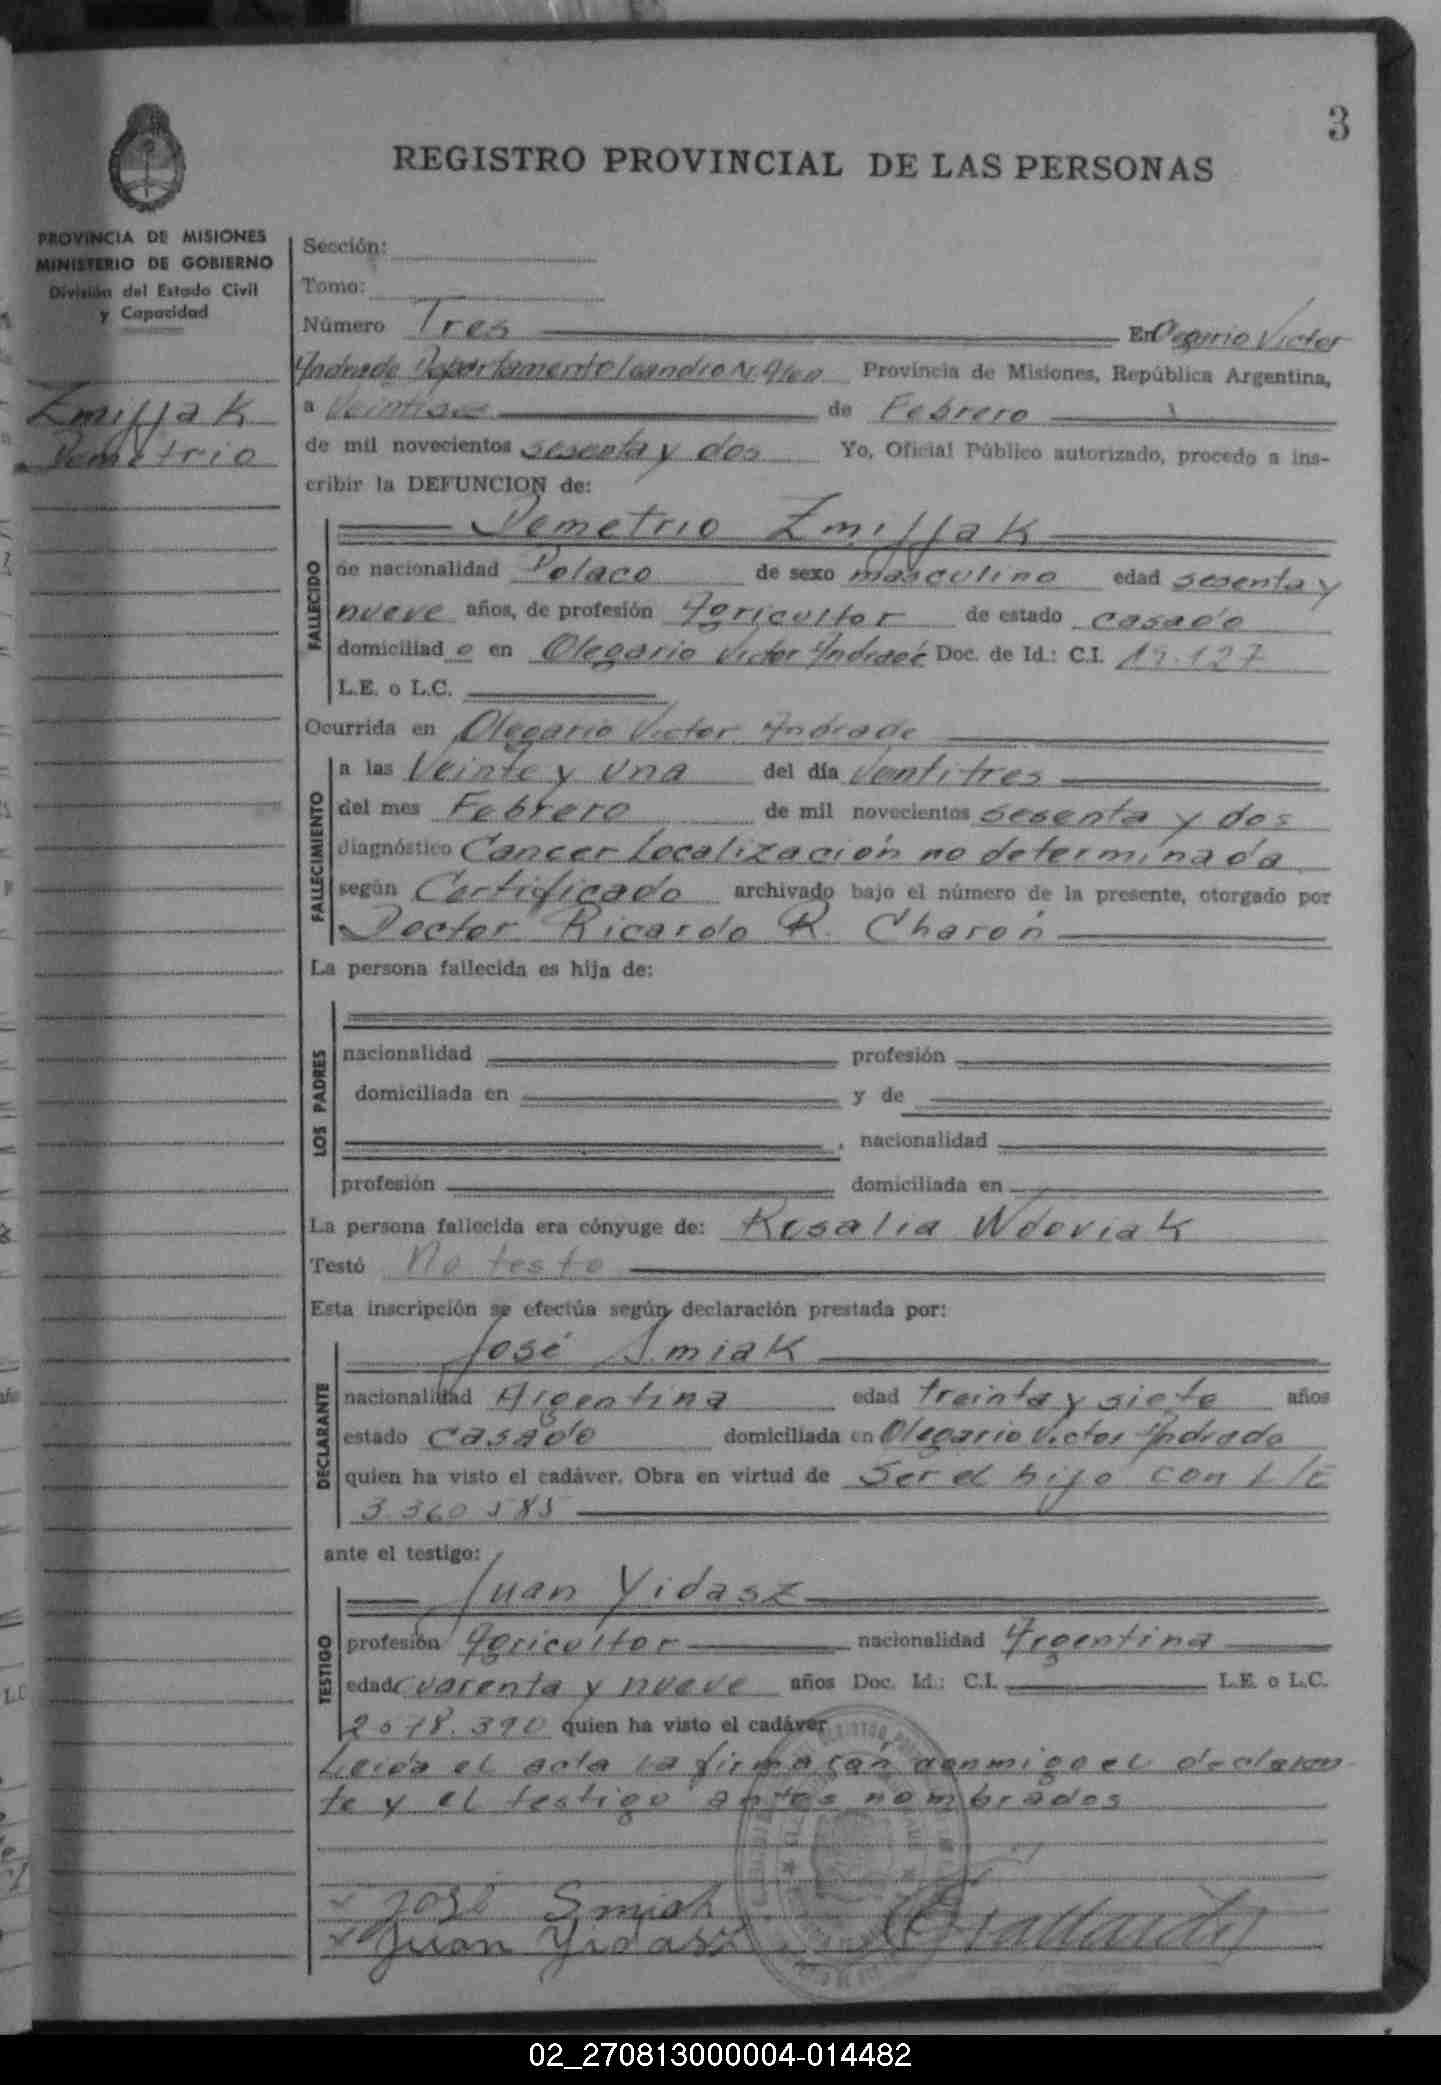 3
REGISTRO PROVINCIAL DE LAS PERSONAS
PROVINCIA DE MISIONES
MINISTERIO DE GOBIERNO
División del Estado Civil
y Capacidad
Zmijjak
Demetrio
Sección:
Tomo:
Número Tres En Olegario Victor
Andrade Departamento Leandro N. Alem Provincia de Misiones, República Argentina,
a de Febrero
de mil novecientos sesenta y dos Yo, Oficial Público autorizado, procedo a ins-
cribir la DEFUNCION de:
Demetrio Zmijjak
FALLECIDO
de nacionalidad Polaco de sexo masculino edad sesenta y
nueve años, de profesión Agricultor de estado casado
domiciliad o en Olegario Victor Andrade Doc. de Id.: C.I. 19.127
L.E. o L.C.
Ocurrida en Olegario Victor Andrade
FALLECIMIENTO
a las Veinte y una del día Ventitres
del mes Febrero de mil novecientos sesenta y dos
diagnóstico Cancer Localización no determinada
según Certificado archivado bajo el número de la presente, otorgado por
Doctor Ricardo R. Charón
La persona fallecida es hija de:
LOS PADRES
nacionalidad profesión
domiciliada en y de
, nacionalidad
profesión domiciliada en
La persona fallecida era cónyuge de: Rosalia Wdoviak
Testó No testo
Esta inscripción se efectúa según declaración prestada por:
José Smiak
DECLARANTE
nacionalidad Argentina edad treinta y siete años
estado casado domiciliada en Olegario Victor Andrade
quien ha visto el cadáver. Obra en virtud de Ser el hijo con L/E
3.360.585
ante el testigo:
Juan Yidasz
TESTIGO
profesión Agricultor nacionalidad Argentina
edad cuarenta y nueve años Doc. Id.: C.I. L.E. o L.C.
2.018.390 quien ha visto el cadáver
Leida el acta la firmaran conmigo el declaran-
te y el testigo antes nombrados
x José Smiak
x Juan Yidasz
02_270813000004-014482